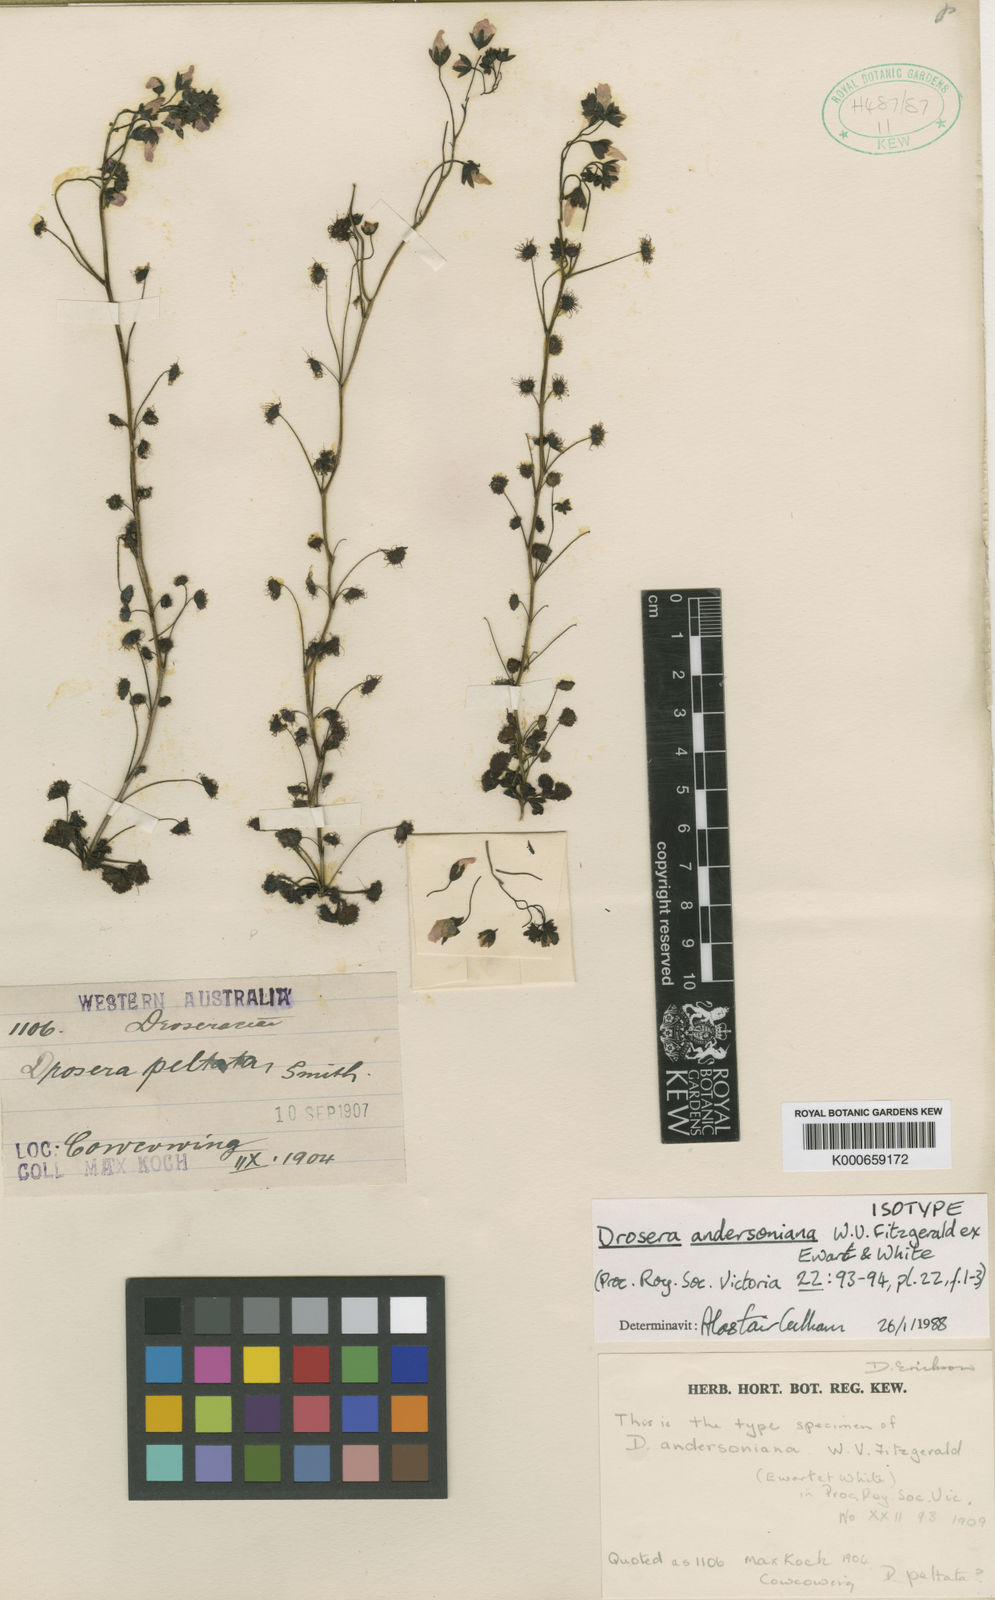 ROYAL BOTANIC GARDENS
H487/87
11
KEW
0
cm
1
2
3
4
5
6
7
8
9
10
copyright reserved
ROYAL
BOTANIC
GARDENS
KEW
WESTERN AUSTRALIA
1106. Droseraceae
Drosera peltata, Smith.
10 SEP 1907
LOC: Cowcowing
COLL MAX KOCH IX. 1904
ROYAL BOTANIC GARDENS KEW
K000659172
ISOTYPE
Drosera andersoniana W.V. Fitzgerald ex
Ewart & White
(Proc. Roy. Soc. Victoria 22: 93-94, pl. 22, f. 1-3)
Determinavit: Alastair Culham 26/1/1988
D. Erickson
HERB. HORT. BOT. REG. KEW.
This is the type specimen of
D. andersoniana W. V. Fitzgerald
(Ewart et White)
in Proc. Roy. Soc. Vic.
No XXII 93 1909
Quoted as 1106 Max Kock 1904
Cowcowing D. peltata?